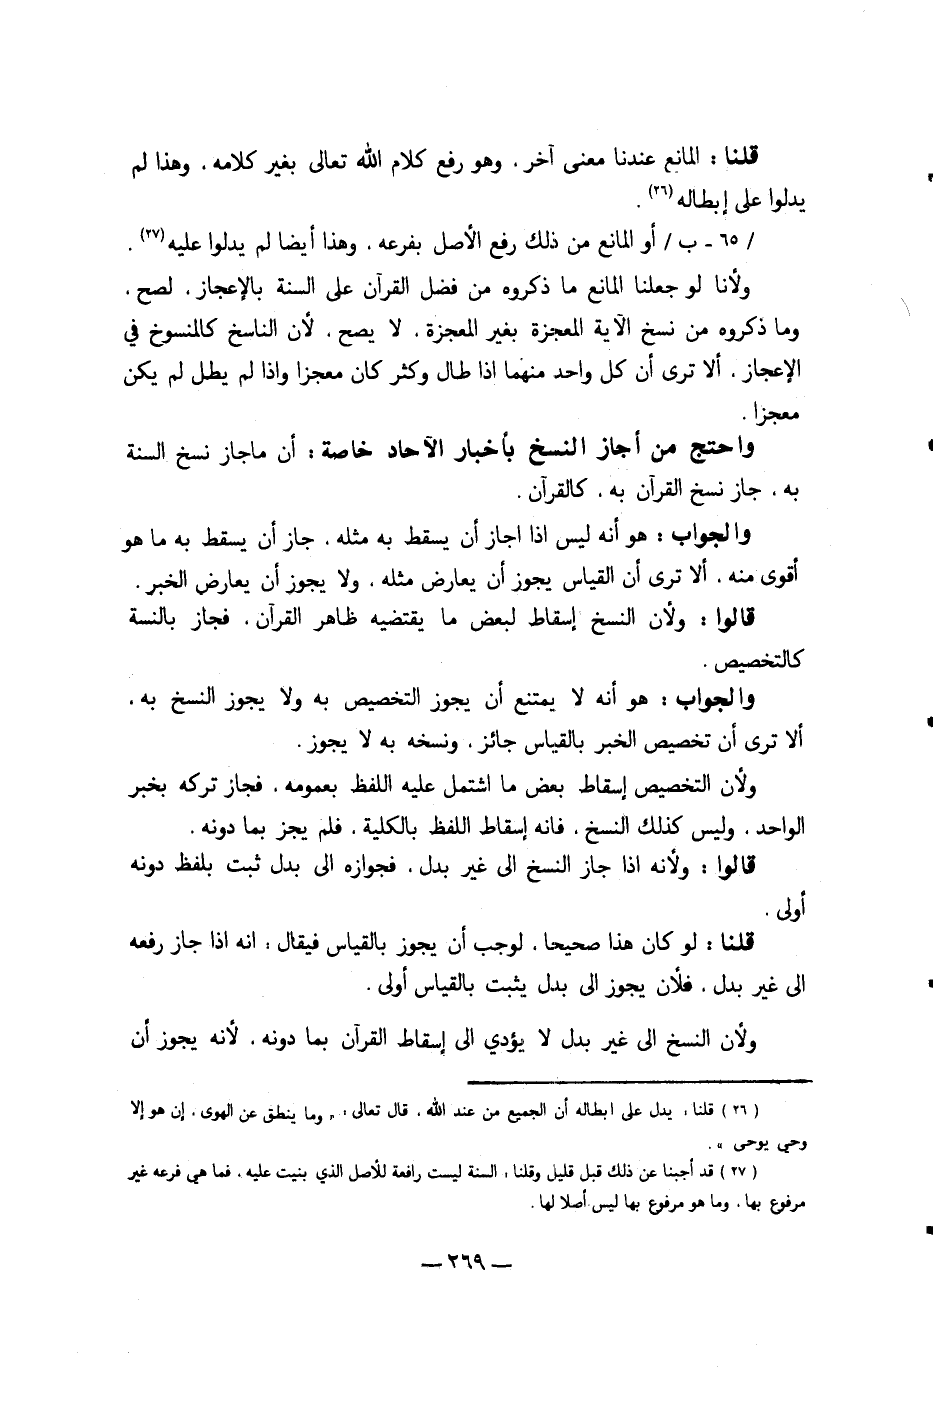 قلنا : المانع عندنا معنى آخر ، وهو رفع كلام الله تعالى بغير كلامه ، وهذا لم
يدلوا على إبطاله (٢٦) .
/ ٦٥ - ب / أو المانع من ذلك رفع الأصل بفرعه ، وهذا أيضا لم يدلوا عليه (٢٧) .
ولأنا لو جعلنا المانع ما ذكروه من فضل القرآن على السنة بالإعجاز ، لصح ،
وما ذكروه من نسخ الآية المعجزة بغير المعجزة ، لا يصح ، لأن الناسخ كالمنسوخ في
الإعجاز ، ألا ترى أن كل واحد منهما اذا طال وكثر كان معجزا واذا لم يطل لم يكن
معجزا .
واحتج من أجاز النسخ بأخبار الآحاد خاصة : أن ماجاز نسخ السنة
به ، جاز نسخ القرآن به ، كالقرآن .
والجواب : هو أنه ليس اذا اجاز أن يسقط به مثله ، جاز أن يسقط به ما هو
أقوى منه ، ألا ترى أن القياس يجوز أن يعارض مثله ، ولا يجوز أن يعارض الخبر .
قالوا : ولأن النسخ إسقاط لبعض ما يقتضيه ظاهر القرآن ، فجاز بالنسة
كالتخصيص .
والجواب : هو أنه لا يمتنع أن يجوز التخصيص به ولا يجوز النسخ به ،
ألا ترى أن تخصيص الخبر بالقياس جائز ، ونسخه به لا يجوز .
ولأن التخصيص إسقاط بعض ما اشتمل عليه اللفظ بعمومه ، فجاز تركه بخبر
الواحد ، وليس كذلك النسخ ، فانه إسقاط اللفظ بالكلية ، فلم يجز بما دونه .
قالوا : ولأنه اذا جاز النسخ الى غير بدل ، فجوازه الى بدل ثبت بلفظ دونه
أولى .
قلنا : لو كان هذا صحيحا ، لوجب أن يجوز بالقياس فيقال : انه اذا جاز رفعه
الى غير بدل ، فلأن يجوز الى بدل يثبت بالقياس أولى .
ولأن النسخ الى غير بدل لا يؤدي الى إسقاط القرآن بما دونه ، لأنه يجوز أن
( ٢٦ ) قلنا : يدل على ابطاله أن الجميع من عند الله ، قال تعالى : « وما ينطق عن الهوى ، إن هو إلا
وحي يوحى » .
( ٢٧ ) قد أجبنا عن ذلك قبل قليل وقلنا : السنة ليست رافعة للأصل الذي بنيت عليه ، فما هي فرعه غير
مرفوع بها ، وما هو مرفوع بها ليس أصلا لها .
— ٢٦٩ —